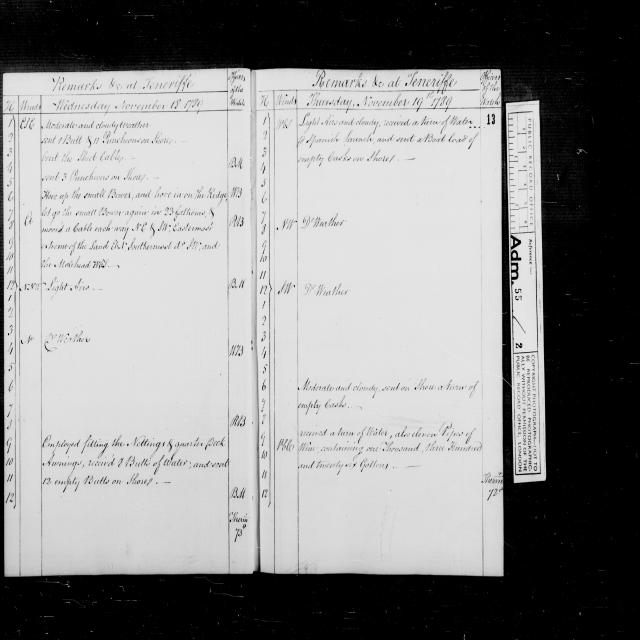 Remarks &c at Teneriffe
H Winds Wednesday November 18 1789
1 ESE Moderate and cloudy weather
2 sent 1 Butt & 11 Puncheons on Shore. —
3 bent the Sheet Cable. —
4 sent 3 Puncheons on Shore. —
5 Hove up the small Bower, and hove in on the Kedge
6 let go the small Bower again in 23 fathoms, &
moor'd a Cable each way NE & SW. Eastermost
extreme of the Land Southermost do SW. and
the Molehead
12 Light Airs —
1
2
3 N Do Weather
4
5
6
7
8
9 Employed fitting the Nettings & quarter Deck
10 Awnings, receiv'd 8 Butts of Water, and sent
11 12 empty Butts on Shore. —
12
Therm
73
Remarks &c at Teneriffe
13
H Winds Thursday, November 19 1789
1 Light Airs and cloudy, received a turn of Water
2 Spanish Launch, and sent a Boat load of
3 empty Casks on Shore. —
4
5
6
7
8 NW Do Weather
9
10
11
12 SW Do Weather
1
2
3
4
5
6 Moderate and cloudy, sent on Shore a turn of
7 empty Casks. —
8
9 received a turn of Water, also eleven Pipes of
10 Wine containing one Thousand, three Hundred
11 and twenty six Gallons. —
12
Therm
73
Adm. 55 / 2
PUBLIC RECORD OFFICE
Reference:-
COPYRIGHT PHOTOGRAPH - NOT TO
BE REPRODUCED PHOTOGRAPHIC-
ALLY WITHOUT PERMISSION OF THE
PUBLIC RECORD OFFICE, LONDON